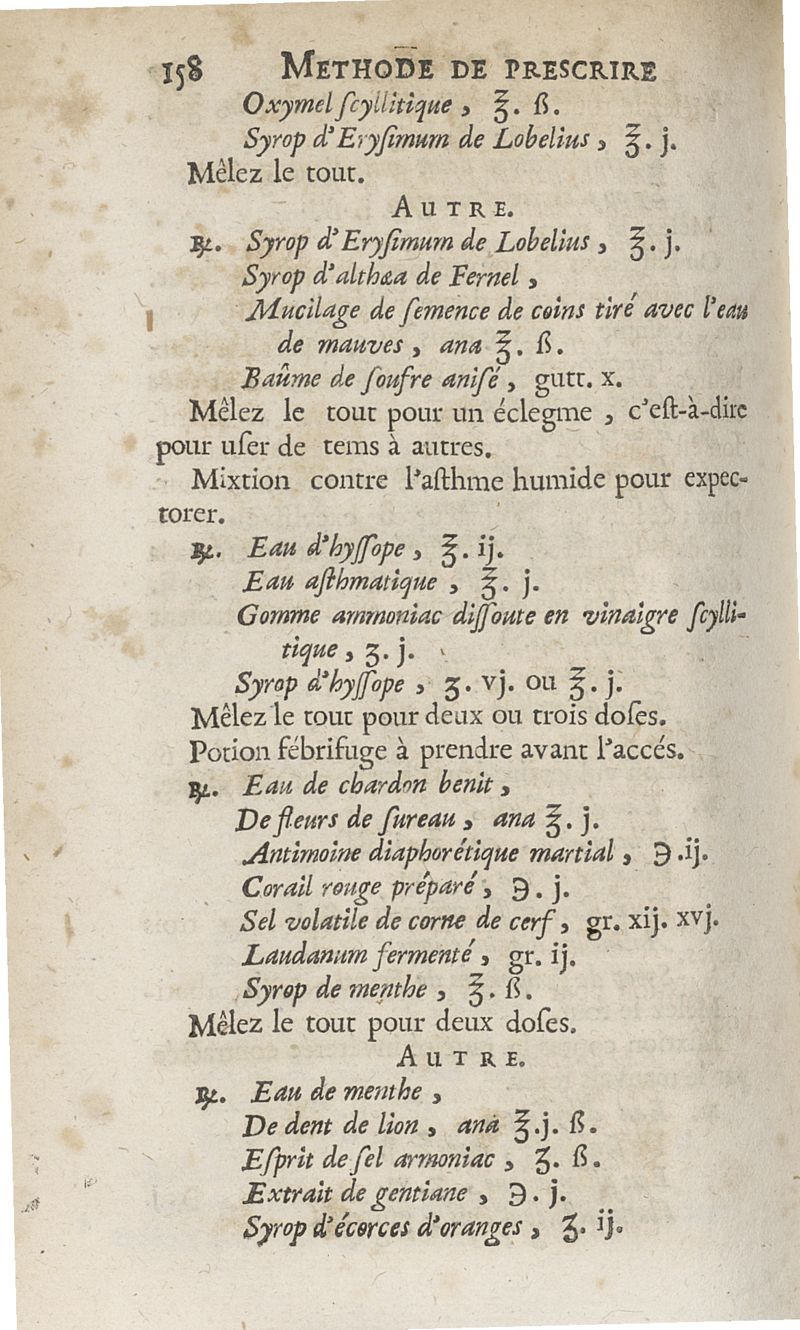 158 METHODE DE PRESCRIRE
Oxymel ſcyllitique, ℥. ß.
Syrop d'Eryſimum de Lobelius, ℥. j.
Mêlez le tout.
AUTRE.
℞. Syrop d'Eryſimum de Lobelius, ℥. j.
Syrop d'althæa de Fernel,
Mucilage de ſemence de coins tiré avec l'eau
de mauves, ana ℥. ß.
Baûme de ſoufre aniſé, gutt. x.
Mêlez le tout pour un éclegme, c'eſt-à-dire
pour uſer de tems à autres.
Mixtion contre l'aſthme humide pour expec-
torer.
℞. Eau d'hyſſope, ℥. ij.
Eau aſthmatique, ℥. j.
Gomme ammoniac diſſoute en vinaigre ſcylli-
tique, ʒ. j.
Syrop d'hyſſope, ʒ. vj. ou ℥. j.
Mêlez le tout pour deux ou trois doſes.
Potion fébrifuge à prendre avant l'accés.
℞. Eau de chardon benit,
De fleurs de ſureau, ana ℥. j.
Antimoine diaphorétique martial, ℈. ij.
Corail rouge préparé, ℈. j.
Sel volatile de corne de cerf, gr. xij. xvj.
Laudanum fermenté, gr. ij.
Syrop de menthe, ℥. ß.
Mêlez le tout pour deux doſes.
AUTRE.
℞. Eau de menthe,
De dent de lion, ana ℥. j. ß.
Eſprit de ſel armoniac, ʒ. ß.
Extrait de gentiane, ℈. j.
Syrop d'écorces d'oranges, ʒ. ij.